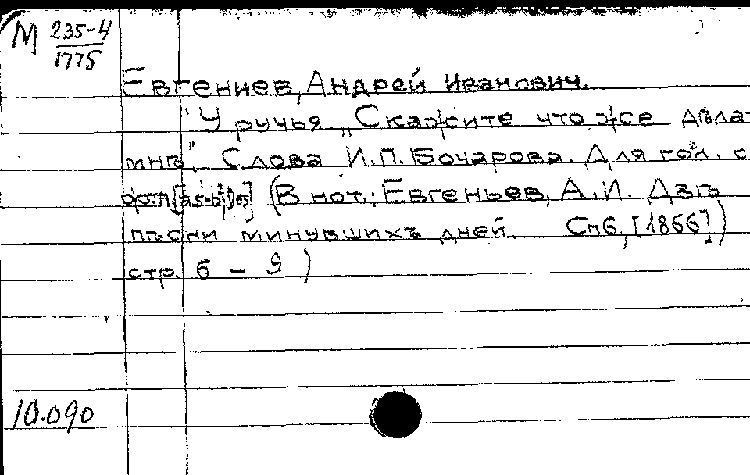 М 235-4
1775
Евгениев, Андрей Иванович.
"У ручья „Скажите что же дѣлат
мнѣ". Слова И.П. Бочарова. Для гол. с
фсп (В нот.: Евгеньев, А.И. Двѣ
пѣсни минувшихъ дней. Спб, [1856])
стр. 6 - 9)
10.090